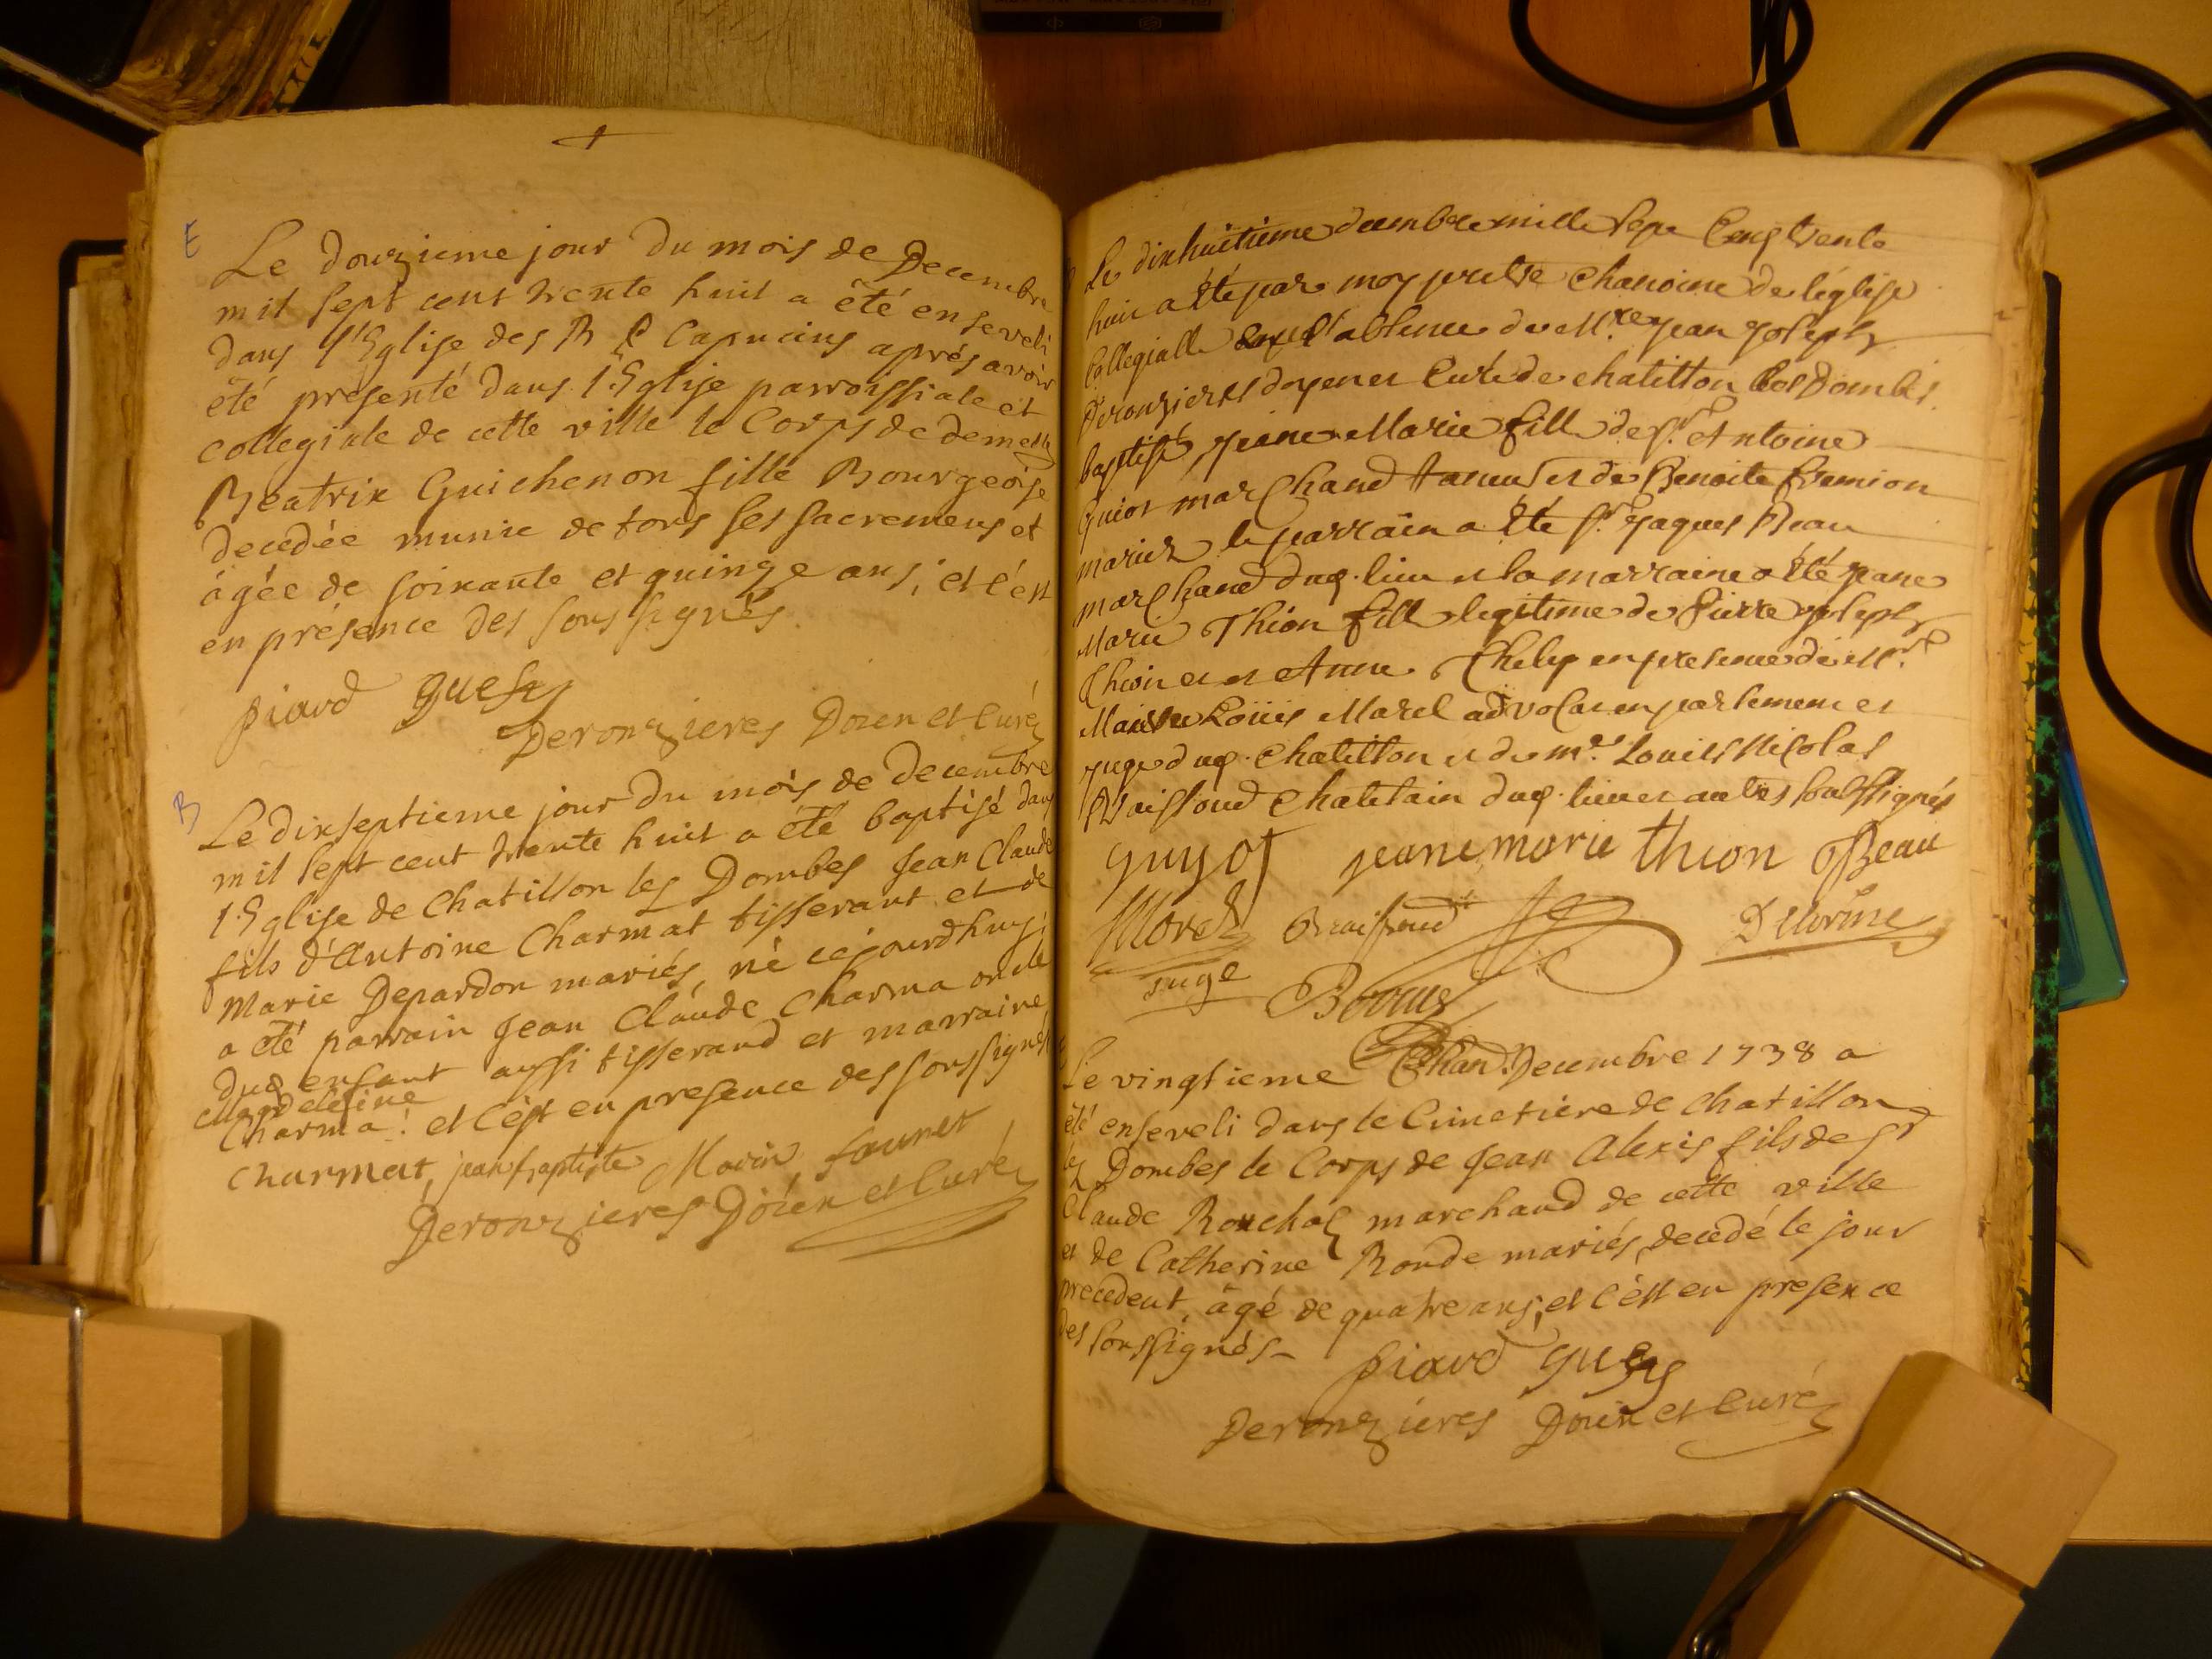 E
Le douzieme jour du mois de Decembre
mil sept cent trente huit a été enseveli
dans l'Eglise des R P Capucins aprés avoir
été presenté dans l'Eglise parroissiale et
collegiale de cette ville le Corps de demelle
Beatrix Guichenon fille Bourgeoise
decedée munie de tous ses sacremens et
âgée de soixante et quinze ans, et c'est
en présence des soussignés
piard guesy
Deronzieres Doien et Curé
B
Le dixseptieme jour du mois de decembre
mil sept cent trente huit a été baptisé dans
l'Eglise de Chatillon les Dombes Jean Claude
fils d'Antoine Charmat tisserant et de
Marie Depardon mariés, né cejourdhuy;
a été parrain Jean Claude Charma oncle
dud enfant aussi tisserand et marraine
Magdeleine
Charma: et c'est en presence des soussignés
Charmat, jean baptiste Morin faunet
Deronzieres Doien et Curé
Le dixhuitieme decembre mille sept Cent trente
huit a été par moy prêtre Chanoine de léglise
Collegialle en l'absence de Mre jean joseph
Deronzieres doyen et Curé de chatillon les Dombes
baptisé jeane Marie fille de sr Antoine
Guiot marchand taneur et de Benoite Bremion
mariez le parrain a été sr jaques Beau
marchand dud. lieu et la marraine a été jeane
Marie Thion fille legitime de Pierre joseph
Thion et et Anne en presence de Mre
Maistre Loüis Morel advocat en parlement et
juge dud. Chatillon et de me Louis Nicolas
Braissoud Chatelain dud. lieu et autres soussignés
guyot jeane marie thion Beau
Morel Braissoud Delorme
juge
Chan.
Le vingtieme Decembre 1738 a
été enseveli dans le Cimetiere de Chatillon
les Dombes le Corps de Jean Alexis fils de sr
Claude Rouchas marchand de cette ville
et de Catherine Ronde mariés, decedé le jour
precedent, âgé de quatre ans, et c'est en presence
des soussignés
piard guesy
Deronzieres Doien et Curé